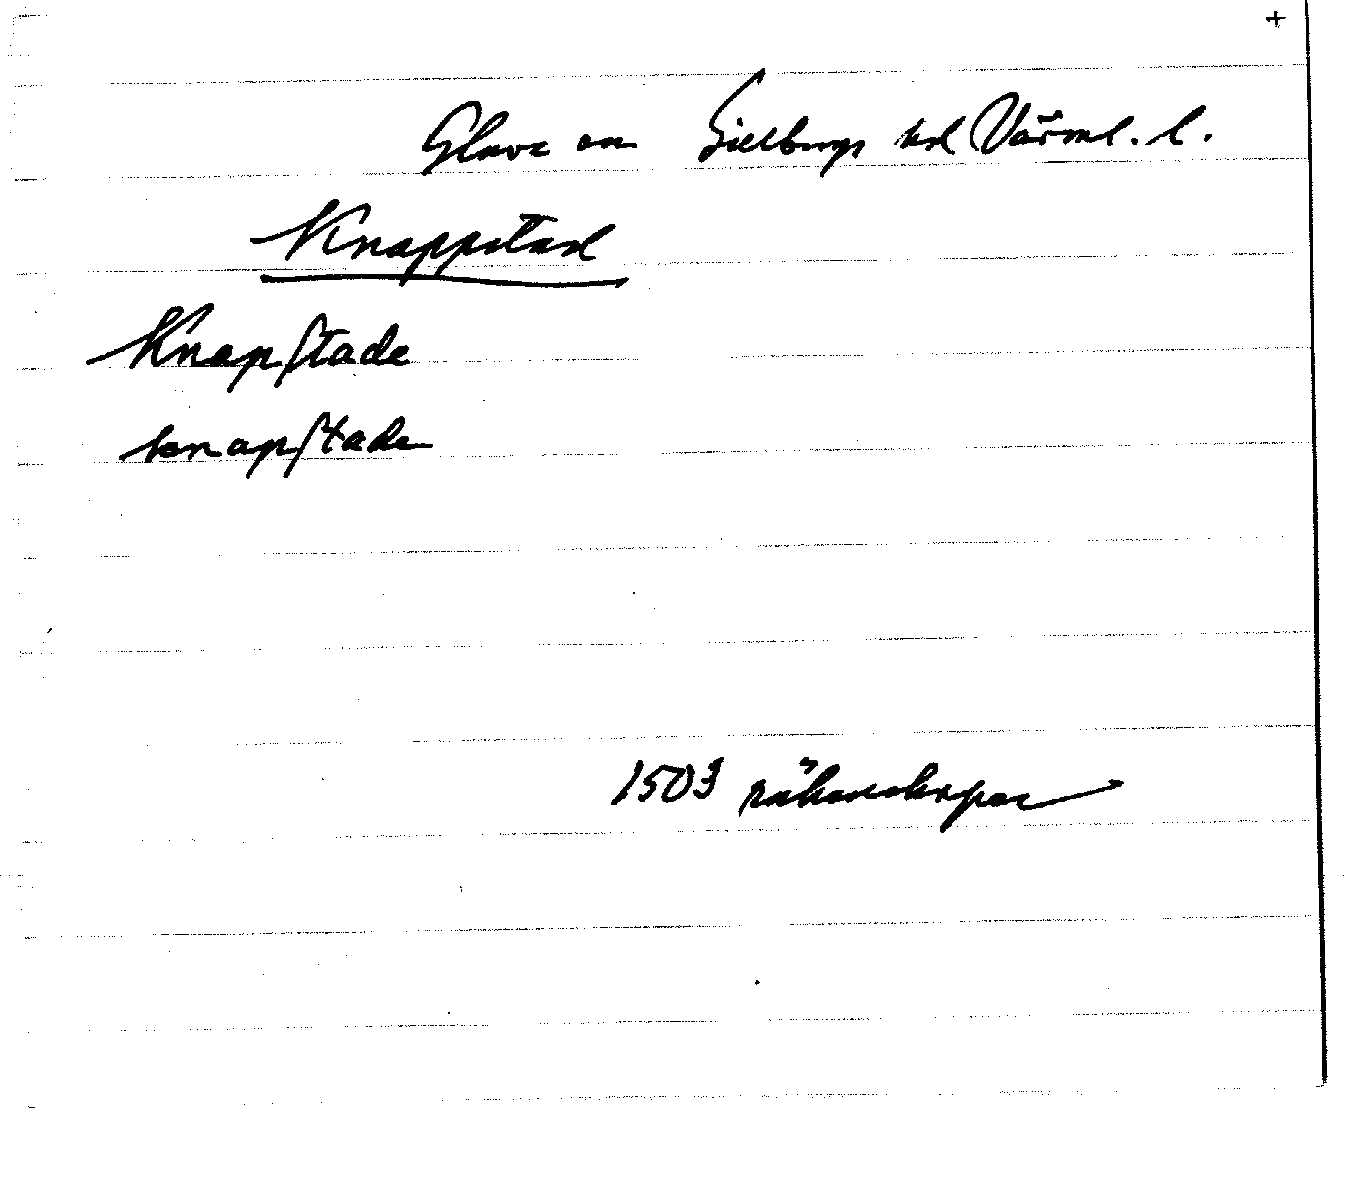 +
Glava sn Gillbergs hd Värml. l.
Knappstad
Knapſtade
knapſtade
1503 räkenskaper